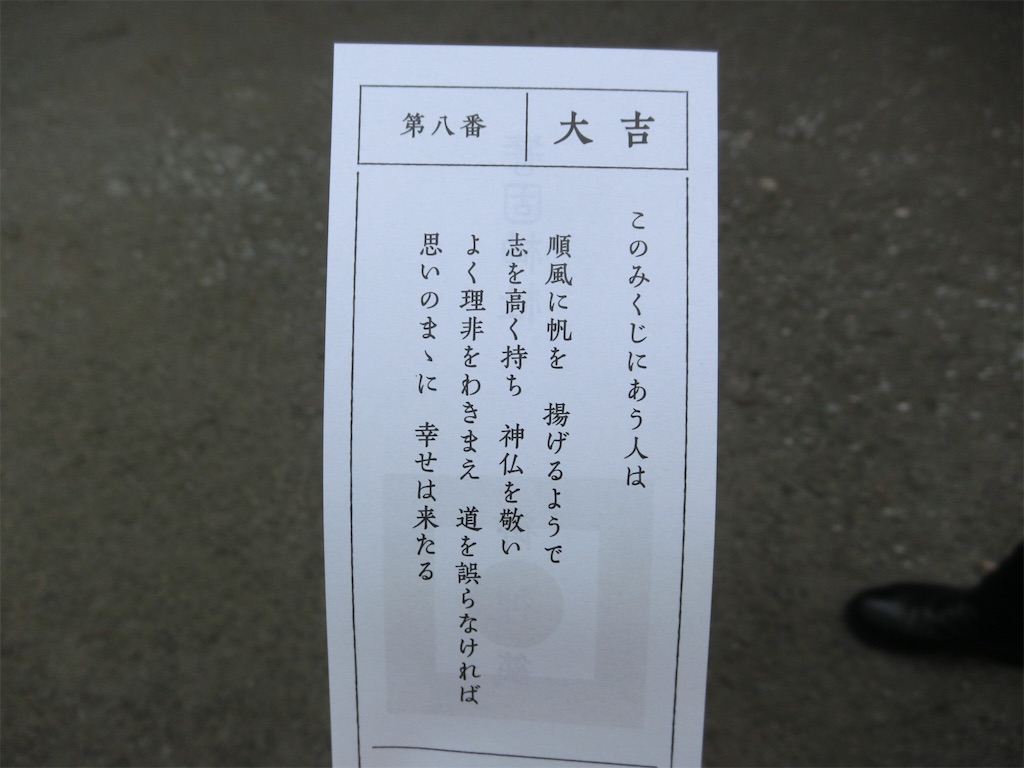 大吉
第八番
このみくじにあう人は
順風に帆を　揚げるようで
志を高く持ち　神仏を敬い
よく理非をわきまえ　道を誤らなければ
思いのまゝに　幸せは来たる